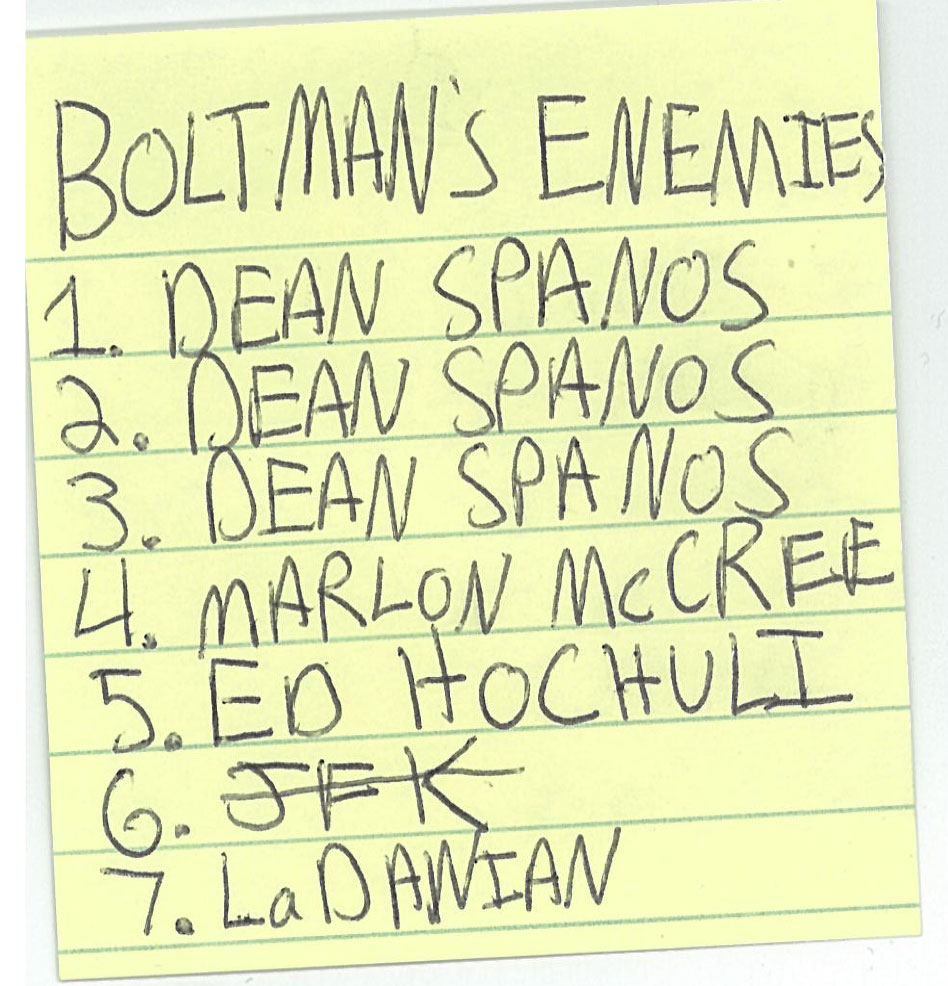 BOLTMAN'S ENEMIES
1. DEAN SPANOS
2. DEAN SPANOS
3. DEAN SPANOS
4. MARLON McCREE
5. ED HOCHULI
6. JFK
7. LaDANIAN